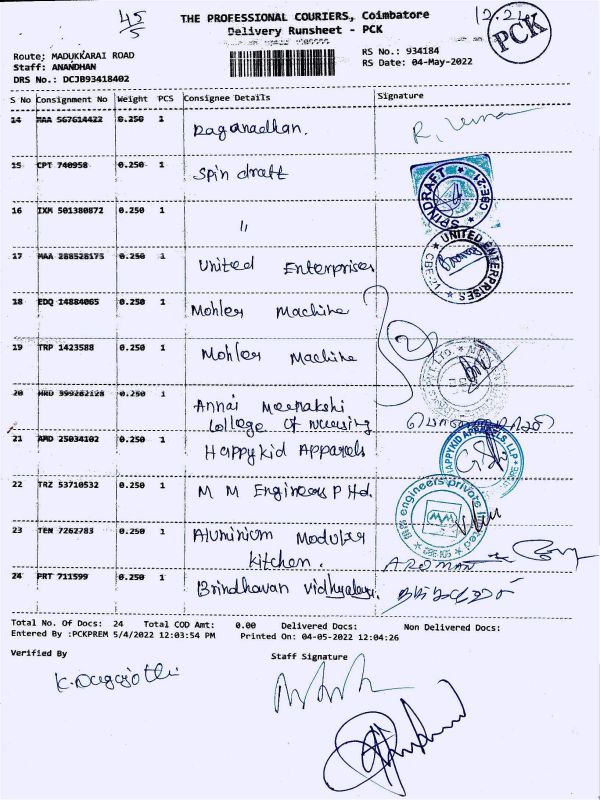 45/5
THE PROFESSIONAL COURIERS, Coimbatore
Delivery Runsheet - PCK
PCK
Route; MADUKKARAI ROAD
Staff: ANANDHAN
DRS No.: DCJB93418402
RS No.: 934184
RS Date: 04-May-2022
S No Consignment No Weight PCS Consignee Details Signature
14 MAA 567614422 0.250 1 Raganadhan.
15 CPT 740958 0.250 1 Spin draft
SPINDRAFT
16 IXM 501380872 0.250 1 "
17 MAA 288528175 0.250 1 United Enterprises
UNITED ENTERPRISES
18 EDQ 14884065 0.250 1 Mohler Machine
19 TRP 1423588 0.250 1 Mohler Machine
20 0.250 1 Annai Meenakshi
College of Nursing
21 AMD 25034102 0.250 1 Happykid Apparels
HAPPYKID APPARELS, LLP
22 TRZ 53710532 0.250 1 M M Engineers P Ltd.
engineers private limited
23 TEN 7262783 0.250 1 Aluminium Moduler
Kitchen.
24 PRT 711599 0.250 1 Brindhavan vidhyalaya.
Total No. Of Docs: 24 Total COD Amt: 0.00 Delivered Docs: Non Delivered Docs:
Entered By :PCKPREM 5/4/2022 12:03:54 PM Printed On: 04-05-2022 12:04:26
Verified By
Staff Signature